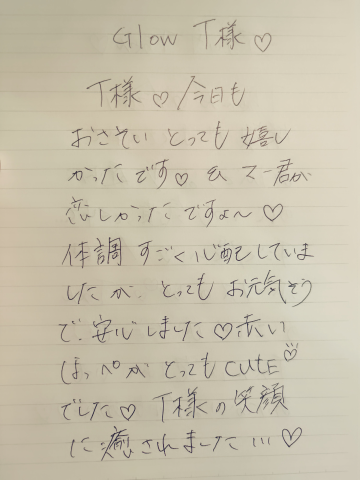 Glow T様♡
T様♡今日も
おさそい とっても 嬉し
かったです♡ & マー君が
恋しかったですょ～♡
体調 すごく心配していま
したが、とっても お元気そう
で、安心しました♡赤い
ほっぺが とっても CUTE♡
でした♡ T様の笑顔
に癒されました…♡